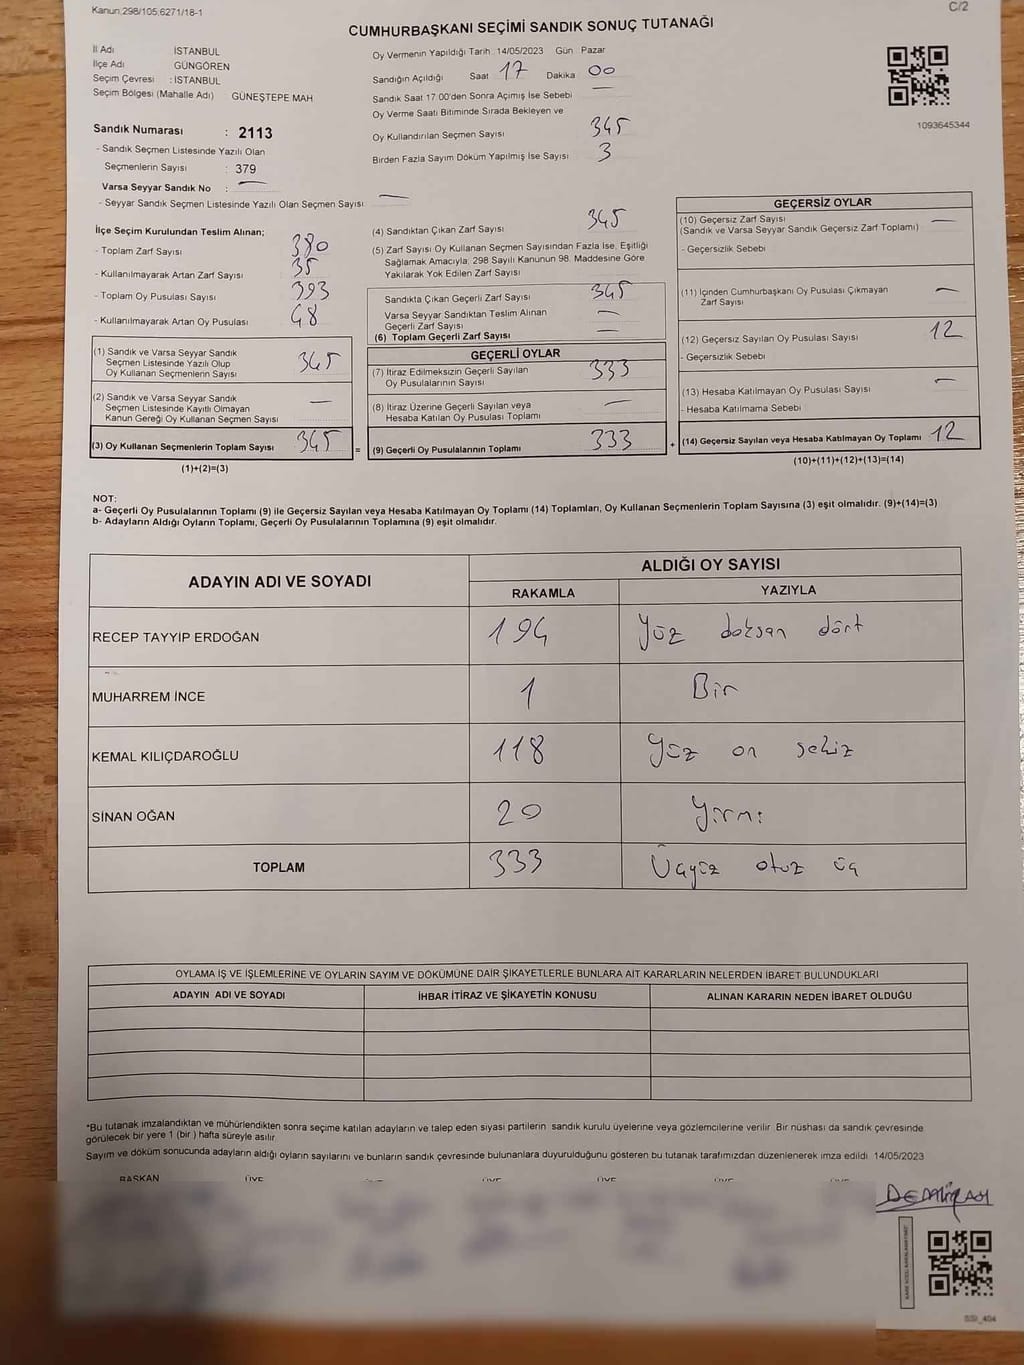 Kanun.298/105.6271/18-1
C/2
CUMHURBAŞKANI SEÇİMİ SANDIK SONUÇ TUTANAĞI
İl Adı İSTANBUL
İlçe Adı GÜNGÖREN
Seçim Çevresi : İSTANBUL
Seçim Bölgesi (Mahalle Adı) GÜNEŞTEPE MAH
Sandık Numarası : 2113
- Sandık Seçmen Listesinde Yazılı Olan
Seçmenlerin Sayısı : 379
Varsa Seyyar Sandık No : —
- Seyyar Sandık Seçmen Listesinde Yazılı Olan Seçmen Sayısı —
Oy Vermenin Yapıldığı Tarih : 14/05/2023 Gün Pazar
Sandığın Açıldığı Saat 17 Dakika 00
Sandık Saat 17:00'den Sonra Açımış İse Sebebi —
Oy Verme Saati Bitiminde Sırada Bekleyen ve
Oy Kullandırılan Seçmen Sayısı 345
Birden Fazla Sayım Döküm Yapılmış İse Sayısı 3
1093645344
İlçe Seçim Kurulundan Teslim Alınan;
- Toplam Zarf Sayısı 380
- Kullanılmayarak Artan Zarf Sayısı 35
- Toplam Oy Pusulası Sayısı 393
- Kullanılmayarak Artan Oy Pusulası 48
(1) Sandık ve Varsa Seyyar Sandık
Seçmen Listesinde Yazılı Olup
Oy Kullanan Seçmenlerin Sayısı 345
(2) Sandık ve Varsa Seyyar Sandık
Seçmen Listesinde Kayıtlı Olmayan
Kanun Gereği Oy Kullanan Seçmen Sayısı —
(3) Oy Kullanan Seçmenlerin Toplam Sayısı 345
(1)+(2)=(3)
(4) Sandıktan Çıkan Zarf Sayısı 345
(5) Zarf Sayısı Oy Kullanan Seçmen Sayısından Fazla İse, Eşitliği
Sağlamak Amacıyla, 298 Sayılı Kanunun 98. Maddesine Göre
Yakılarak Yok Edilen Zarf Sayısı
Sandıkta Çıkan Geçerli Zarf Sayısı 345
Varsa Seyyar Sandıktan Teslim Alınan
Geçerli Zarf Sayısı —
(6) Toplam Geçerli Zarf Sayısı —
GEÇERLİ OYLAR
(7) İtiraz Edilmeksizin Geçerli Sayılan
Oy Pusulalarının Sayısı 333
(8) İtiraz Üzerine Geçerli Sayılan veya
Hesaba Katılan Oy Pusulası Toplamı —
= (9) Geçerli Oy Pusulalarının Toplamı 333
GEÇERSİZ OYLAR
(10) Geçersiz Zarf Sayısı —
(Sandık ve Varsa Seyyar Sandık Geçersiz Zarf Toplamı)
- Geçersizlik Sebebi
(11) İçinden Cumhurbaşkanı Oy Pusulası Çıkmayan
Zarf Sayısı —
(12) Geçersiz Sayılan Oy Pusulası Sayısı 12
- Geçersizlik Sebebi
(13) Hesaba Katılmayan Oy Pusulası Sayısı —
- Hesaba Katılmama Sebebi
+ (14) Geçersiz Sayılan veya Hesaba Katılmayan Oy Toplamı 12
(10)+(11)+(12)+(13)=(14)
NOT:
a- Geçerli Oy Pusulalarının Toplamı (9) ile Geçersiz Sayılan veya Hesaba Katılmayan Oy Toplamı (14) Toplamları, Oy Kullanan Seçmenlerin Toplam Sayısına (3) eşit olmalıdır. (9)+(14)=(3)
b- Adayların Aldığı Oyların Toplamı, Geçerli Oy Pusulalarının Toplamına (9) eşit olmalıdır.
ADAYIN ADI VE SOYADI
ALDIĞI OY SAYISI
RAKAMLA YAZIYLA
RECEP TAYYİP ERDOĞAN 194 Yüz doksan dört
MUHARREM İNCE 1 Bir
KEMAL KILIÇDAROĞLU 118 Yüz on sekiz
SİNAN OĞAN 20 Yirmi
TOPLAM 333 Üçyüz otuz üç
OYLAMA İŞ VE İŞLEMLERİNE VE OYLARIN SAYIM VE DÖKÜMÜNE DAİR ŞİKAYETLERLE BUNLARA AİT KARARLARIN NELERDEN İBARET BULUNDUKLARI
ADAYIN ADI VE SOYADI İHBAR İTİRAZ VE ŞİKAYETİN KONUSU ALINAN KARARIN NEDEN İBARET OLDUĞU
*Bu tutanak imzalandıktan ve mühürlendikten sonra seçime katılan adayların ve talep eden siyasi partilerin sandık kurulu üyelerine veya gözlemcilerine verilir. Bir nüshası da sandık çevresinde
görülecek bir yere 1 (bir) hafta süreyle asılır.
Sayım ve döküm sonucunda adayların aldığı oyların sayılarını ve bunların sandık çevresinde bulunanlara duyurulduğunu gösteren bu tutanak tarafımızdan düzenlenerek imza edildi. 14/05/2023
BAŞKAN ÜYE ÜYE ÜYE ÜYE ÜYE ÜYE